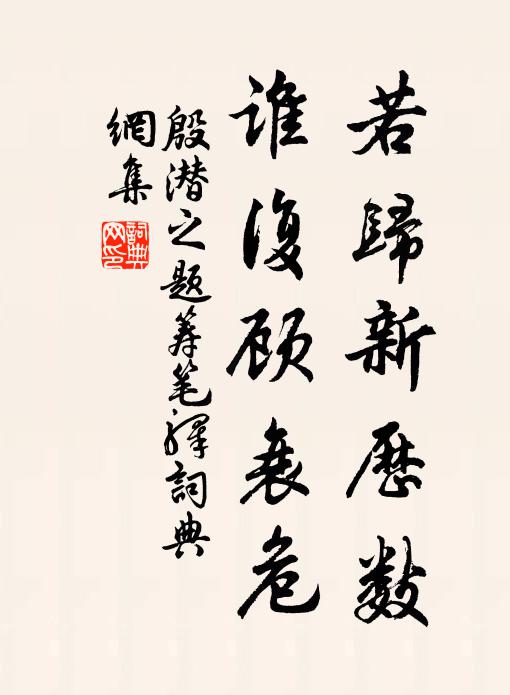 若歸新歷數
谁復顾衰危
殷潜之题筹笔驿詞典
網集
詞典
网印